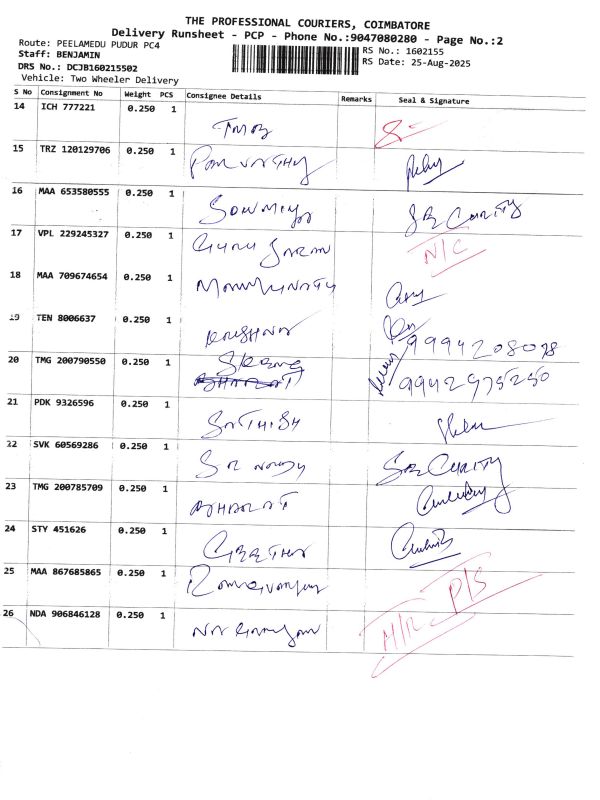 THE PROFESSIONAL COURIERS, COIMBATORE
Delivery Runsheet - PCP - Phone No.:9047080280 - Page No.:2
Route: PEELAMEDU PUDUR PC4
RS No.: 1602155
Staff: BENJAMIN
RS Date: 25-Aug-2025
DRS No.: DCJB160215502
Vehicle: Two Wheeler Delivery
S No Consignment No Weight PCS Consignee Details Remarks Seal & Signature
14 ICH 777221 0.250 1
15 TRZ 120129706 0.250 1 PARVATHY
16 MAA 653580555 0.250 1 SOWMIYA SECURITY
17 VPL 229245327 0.250 1 GURU SARAN N/C
18 MAA 709674654 0.250 1
19 TEN 8006637 0.250 1 KRISHNA 9994208098
20 TMG 200790550 0.250 1 9942975250
21 PDK 9326596 0.250 1 SATHISH
22 SVK 60569286 0.250 1 SECURITY
23 TMG 200785709 0.250 1 BHARAT
24 STY 451626 0.250 1 GEETHA
25 MAA 867685865 0.250 1 P/S
26 NDA 906846128 0.250 1 H/R